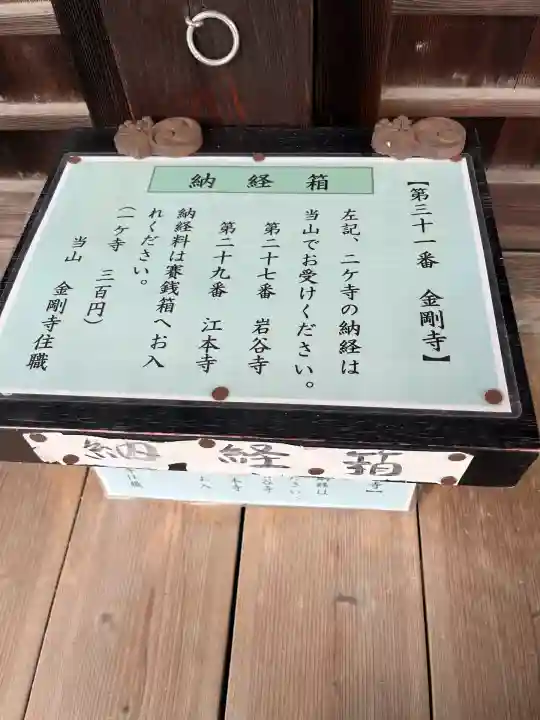 納経箱
【第三十一番 金剛寺】
左記、二ケ寺の納経は
当山でお受けください。
第二十七番 岩谷寺
第二十九番 江本寺
納経料は賽銭箱へお入
れください。
(一ケ寺 三百円)
当山 金剛寺住職
納経箱
寺】
納経は
ださい。
谷寺
本寺
お入
寺住職